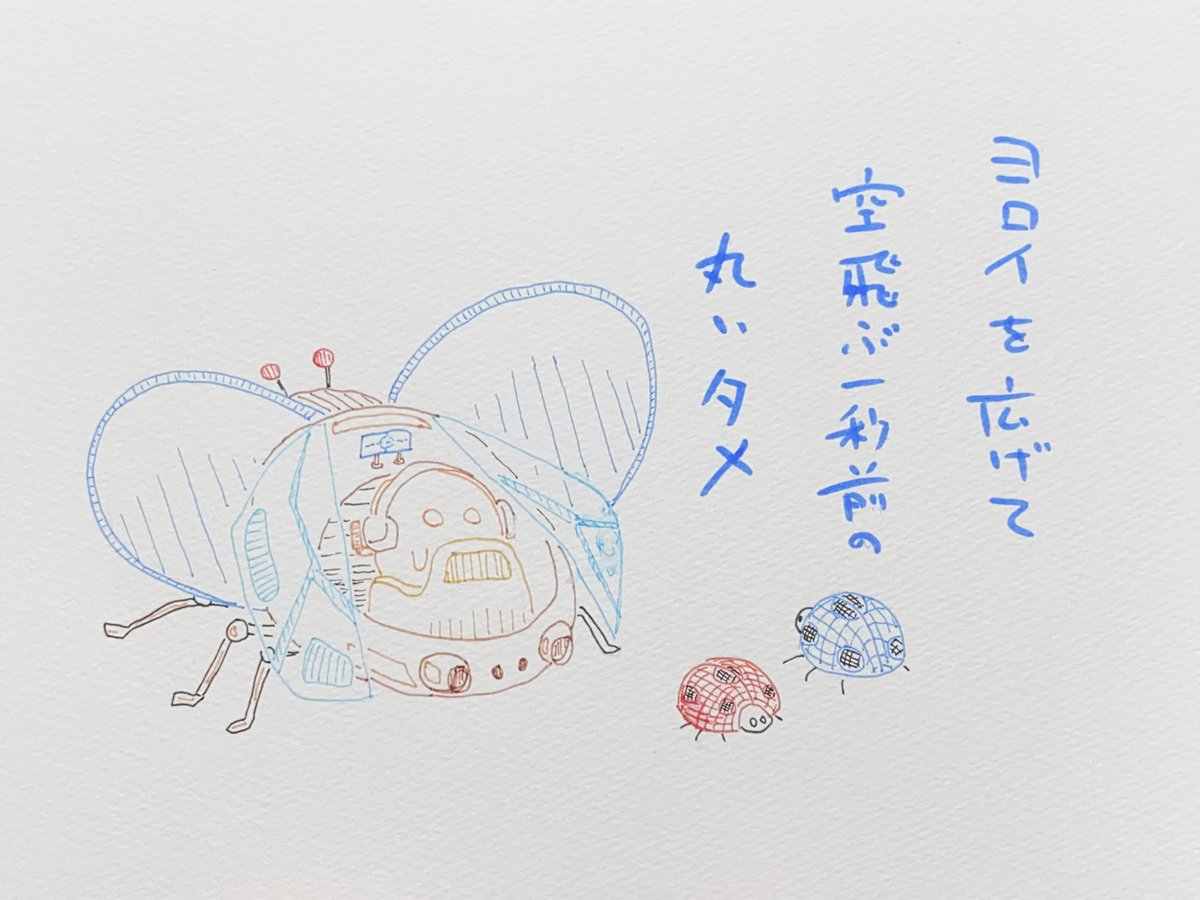 ヨロイを広げて
空飛ぶ一秒前の
丸いタメ